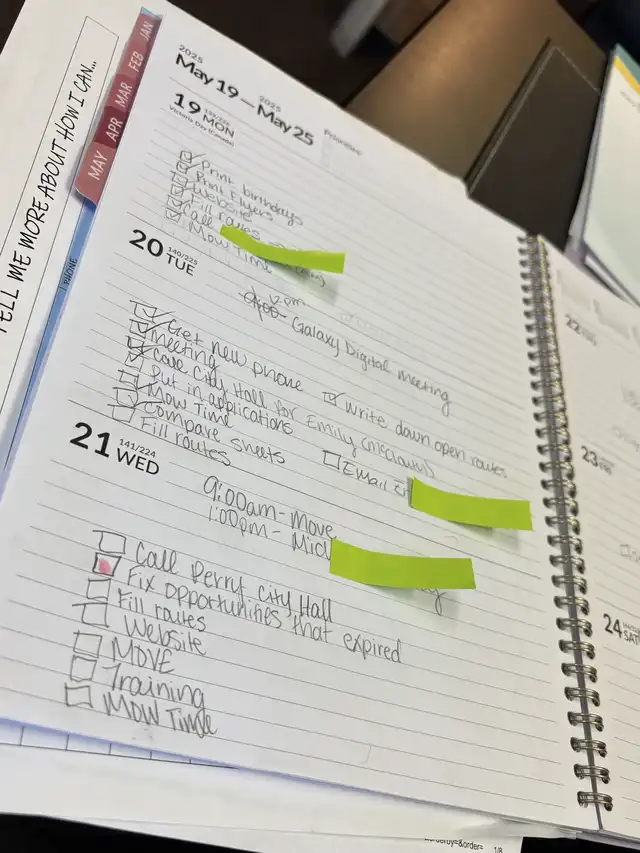 TELL ME MORE ABOUT HOW I CAN...
PHONE
JAN
FEB
MAR
APR
MAY
2025 2025
May 19 — May 25
Priorities:
19 MON
Victoria Day (Canada)
Print birthdays
Print Flyers
Website
Fill routes
Call
Mow Time
20 140/225 TUE
12pm
Galaxy Digital Meeting
Get new phone
Meeting
Write down open routes
Call City Hall for Emily (McCloud)
Put in applications
Mow Time
Email
Compare sheets
Fill routes
21 141/224 WED
9:00am - Move
1:00pm -
Call Perry City Hall
Fix opportunities that expired
Fill routes
Website
MOVE
Training
Mow Time
22
23
24
SAT
1/8